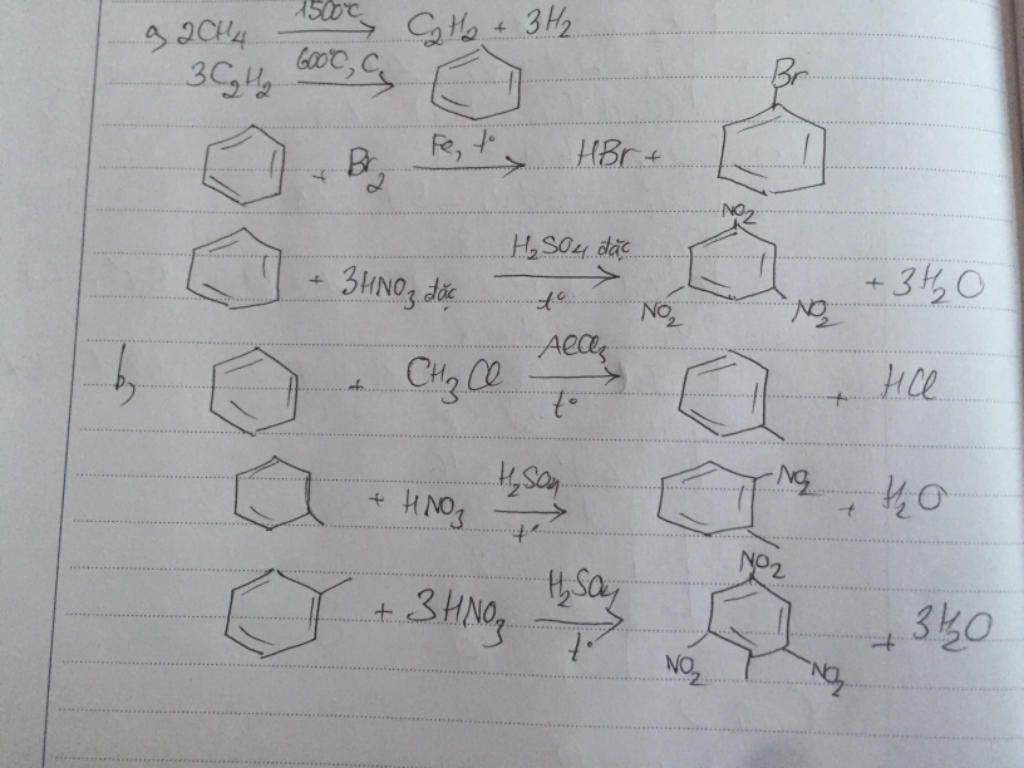 a, 2CH₄ 1500°C → C₂H₂ + 3H₂
3C₂H₂ 600°C, C →
Br
+ Br₂ Fe, t° → HBr +
NO₂
+ 3HNO₃ đặc H₂SO₄ đặc t° → NO₂ NO₂ + 3H₂O
b, + CH₃Cl AlCl₃ t° → + HCl
+ HNO₃ H₂SO₄ t° → NO₂ + H₂O
NO₂
+ 3HNO₃ H₂SO₄ t° → NO₂ NO₂ + 3H₂O